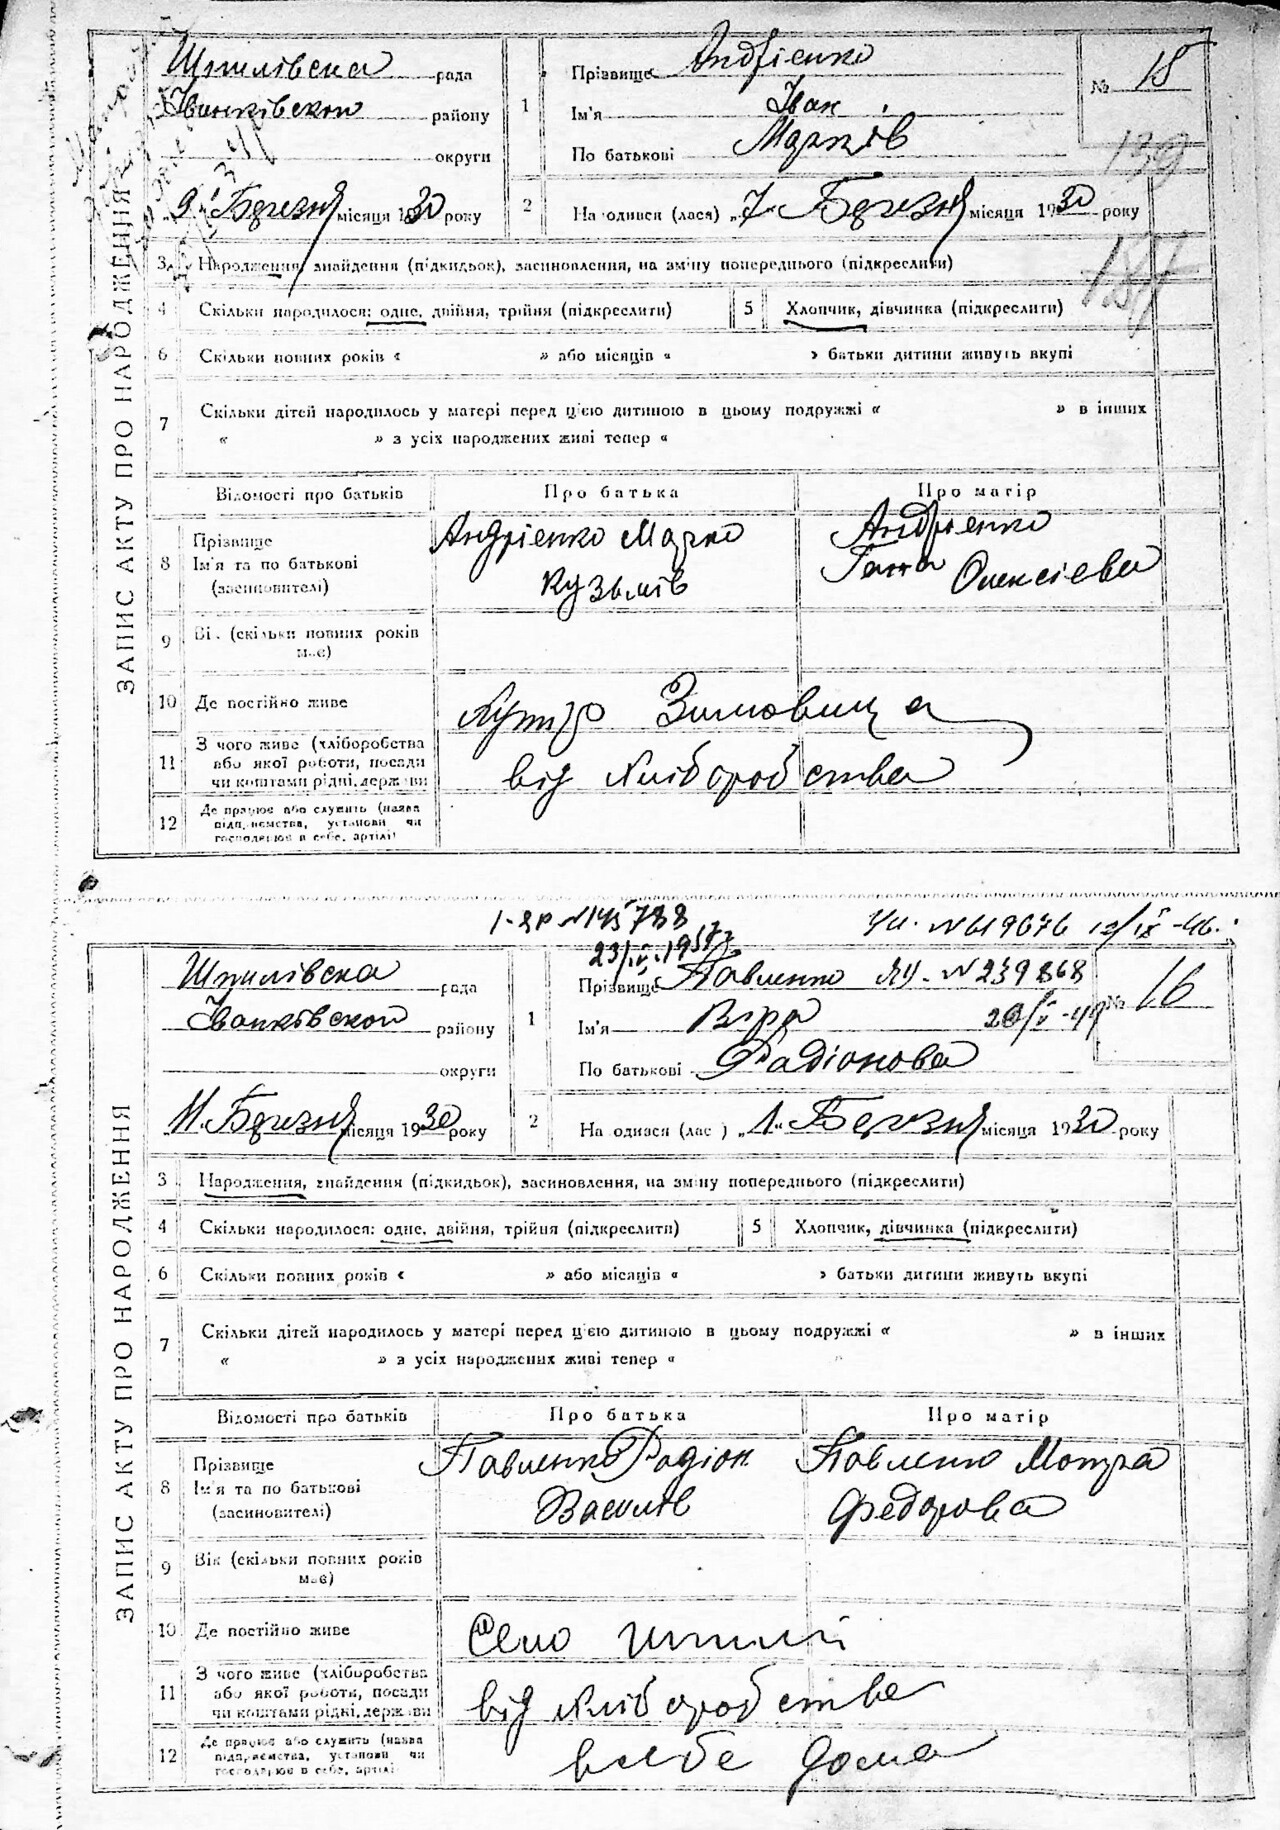 ЗАПИС АКТУ ПРО НАРОДЖЕННЯ
Шпилівска рада
Іванківскои району
округи
"9" Березня місяця 1930 року
1 Прізвище Андрієнко
Ім'я Іван
По батькові Марків
№ 15
139
2 На одився (лася) „7" Березня місяця 1930 року
3 Народження, знайдення (підкидьок), засиновлення, на зміну попереднього (підкреслити)
187
4 Скільки народилося: одне, двійня, трійня (підкреслити) 5 Хлопчик, дівчинка (підкреслити)
6 Скільки повних років « » або місяців « » батьки дитини живуть вкупі
7 Скільки дітей народилось у матері перед цією дитиною в цьому подружжі « » в інших
« » з усіх народжених живі тепер «
Відомості про батьків Про батька Про матір
8 Прізвище
Ім'я та по батькові
(засиновителі)
Андрієнко Марко
Кузьмів
Андрієнко
Ганна Олексієва
9 Ві . (скільки повних років
має)
10 Де постійно живе Хутір Зимовища
11 З чого живе (хліборобства
або якої роботи, посади
чи коштами рідні, держави
від хліборобства
12 Де працює або служить (назва
підприємства, установи чи
господарює в себе, артілі)
1-ЯР №145788
23/IV.1957г
Уи. №619676 12/IX-46.
ЗАПИС АКТУ ПРО НАРОДЖЕННЯ
Шпилівска рада
Іванківскои району
округи
11. Березня місяця 1930 року
1 Прізвище Павленко ЯУ-№239868
Ім'я Віра 20/V-49
По батькові Радіонова
№ 16
2 На одився (лас ) „1." Березня місяця 1930 року
3 Народження, знайдення (підкидьок), засиновлення, на зміну попереднього (підкреслити)
4 Скільки народилося: одне, двійня, трійня (підкреслити) 5 Хлопчик, дівчинка (підкреслити)
6 Скільки повних років « » або місяців « » батьки дитини живуть вкупі
7 Скільки дітей народилось у матері перед цією дитиною в цьому подружжі « » в інших
« » з усіх народжених живі тепер «
Відомості про батьків Про батька Про матір
8 Прізвище
Ім'я та по батькові
(засиновителі)
Павленко Радіон
Василів
Павленко Мотря
Федорова
9 Вік (скільки повних років
має)
10 Де постійно живе Село Шпилі
11 З чого живе (хліборобства
або якої роботи, посади
чи коштами рідні, держави
від хліборобства
12 Де працює або служить (назва
підприємства, установи чи
господарює в себе, артілі
в себе дома